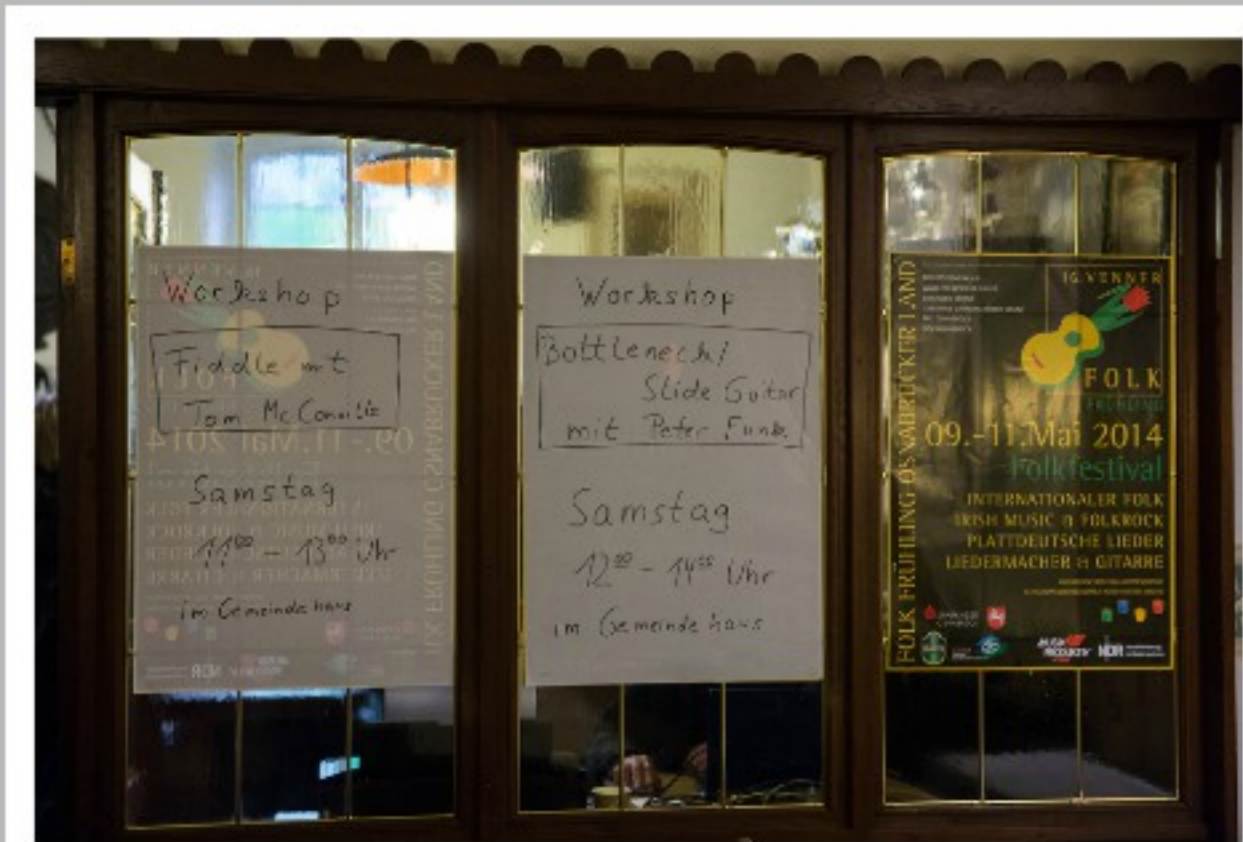 Workshop
Fiddle mit
Tom McConville
Samstag
11⁰⁰ - 13⁰⁰ Uhr
im Gemeindehaus
Workshop
Bottleneck/
Slide Guitar
mit Peter Funk
Samstag
12⁰⁰ - 14⁰⁰ Uhr
im Gemeindehaus
FOLK FRÜHLING OSNABRÜCKER LAND
16. VENNER
FOLK
FRÜHLING
09.-11.Mai 2014
Folkfestival
INTERNATIONALER FOLK
IRISH MUSIC & FOLKROCK
PLATTDEUTSCHE LIEDER
LIEDERMACHER & GITARRE
MUSIK
PRODUKTIV
NDR